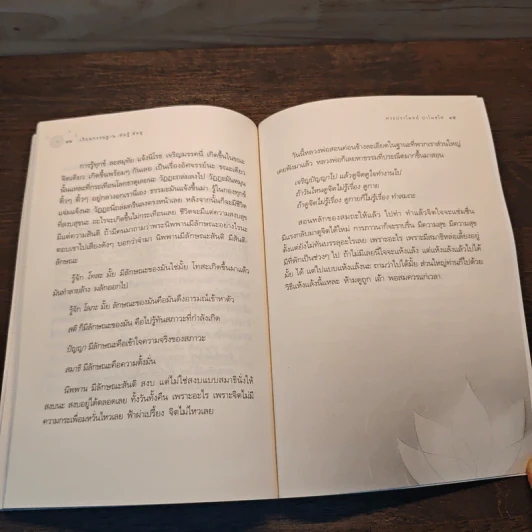 การรู้ทุกข์ ละสมุทัย แจ้งนิโรธ เจริญมรรคนี้ เกิดขึ้นในขณะ
จิตเดียว เกิดขึ้นพร้อมๆ กันเลย เป็นเรื่องอัศจรรย์นะ ขณะเดียว
มีแต่ความสันติ ถ้ามีคนมาถามว่าพระนิพพานมีลักษณะอย่างไรนะ
ตอบเขาไปเสียงดังๆ บอกว่าจำมา นิพพานมีลักษณะสันติ มีสันติ-
ลักษณะ
รู้จัก โทสะ มั้ย มีลักษณะของมันใช่มั้ย โทสะเกิดขึ้นมาแล้ว
มันทำลายล้าง ผลักออกไป
รู้จัก โลภะ มั้ย ลักษณะของมันคือมันดึงอารมณ์เข้าหาตัว
สติ ก็มีลักษณะของมัน คือไปรู้ทันสภาวะที่กำลังเกิด
ปัญญา มีลักษณะคือเข้าใจความจริงของสภาวะ
สมาธิ มีลักษณะคือความตั้งมั่น
นิพพาน มีลักษณะสันติ สงบ แต่ไม่ใช่สงบแบบสมาธินั่งให้
สงบนะ สงบอยู่ได้ตลอดเลย ทั้งวันทั้งคืน เพราะอะไร เพราะจิตไม่มี
ความกระเพื่อมหวั่นไหวเลย ฟ้าผ่าเปรี้ยง จิตไม่ไหวเลย
วันนี้หลวงพ่อสอนค่อนข้างละเอียดในฐานะที่พวกเราส่วนใหญ่
เคยฟังมาแล้ว หลวงพ่อก็เลยหาธรรมที่ประณีตมากขึ้นมาสอน
เจริญปัญญาไป แล้วดูจิตใจทำงานไป
ถ้าวันไหนดูจิตไม่รู้เรื่อง ดูกาย
ถ้าดูจิตก็ไม่รู้เรื่อง ดูกายก็ไม่รู้เรื่อง ทำสมถะ
สอนหลักของสมถะให้แล้ว ไปทำ ทำแล้วจิตใจจะแช่มชื่น
มีแรงกลับมาดูจิตได้ใหม่ การภาวนาก็จะราบรื่น มีความสุข มีความสุข
ตั้งแต่ยังไม่ทันบรรลุอะไรเลย เพราะอะไร เพราะมีสมาธิหล่อเลี้ยงอยู่
มีที่พักเป็นช่วงๆ ไป ถ้าไม่มีเลยนี่ใจจะแห้งแล้ง แต่แห้งแล้งไปได้
มั้ย ได้ แต่ไปแบบแห้งแล้งนะ ถามว่าไปได้มั้ย ส่วนใหญ่ท่านก็ไปด้วย
วิธีแห้งแล้งนี้แหละ ห้ามดูถูก เอ้า พอสมควรแก่เวลา